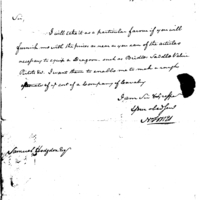 Sir,
I will take it as a particular favour if you will
furnish me with the prices as near as you can of the articles
necessary to equip a Dragoon, such as Bridles Saddles Valise
Pistols &c. I want them to enable me to make a rough
of of a Company of Cavalry
I am Sir
Your Obed Serv
Samuel Hodgdon Esq